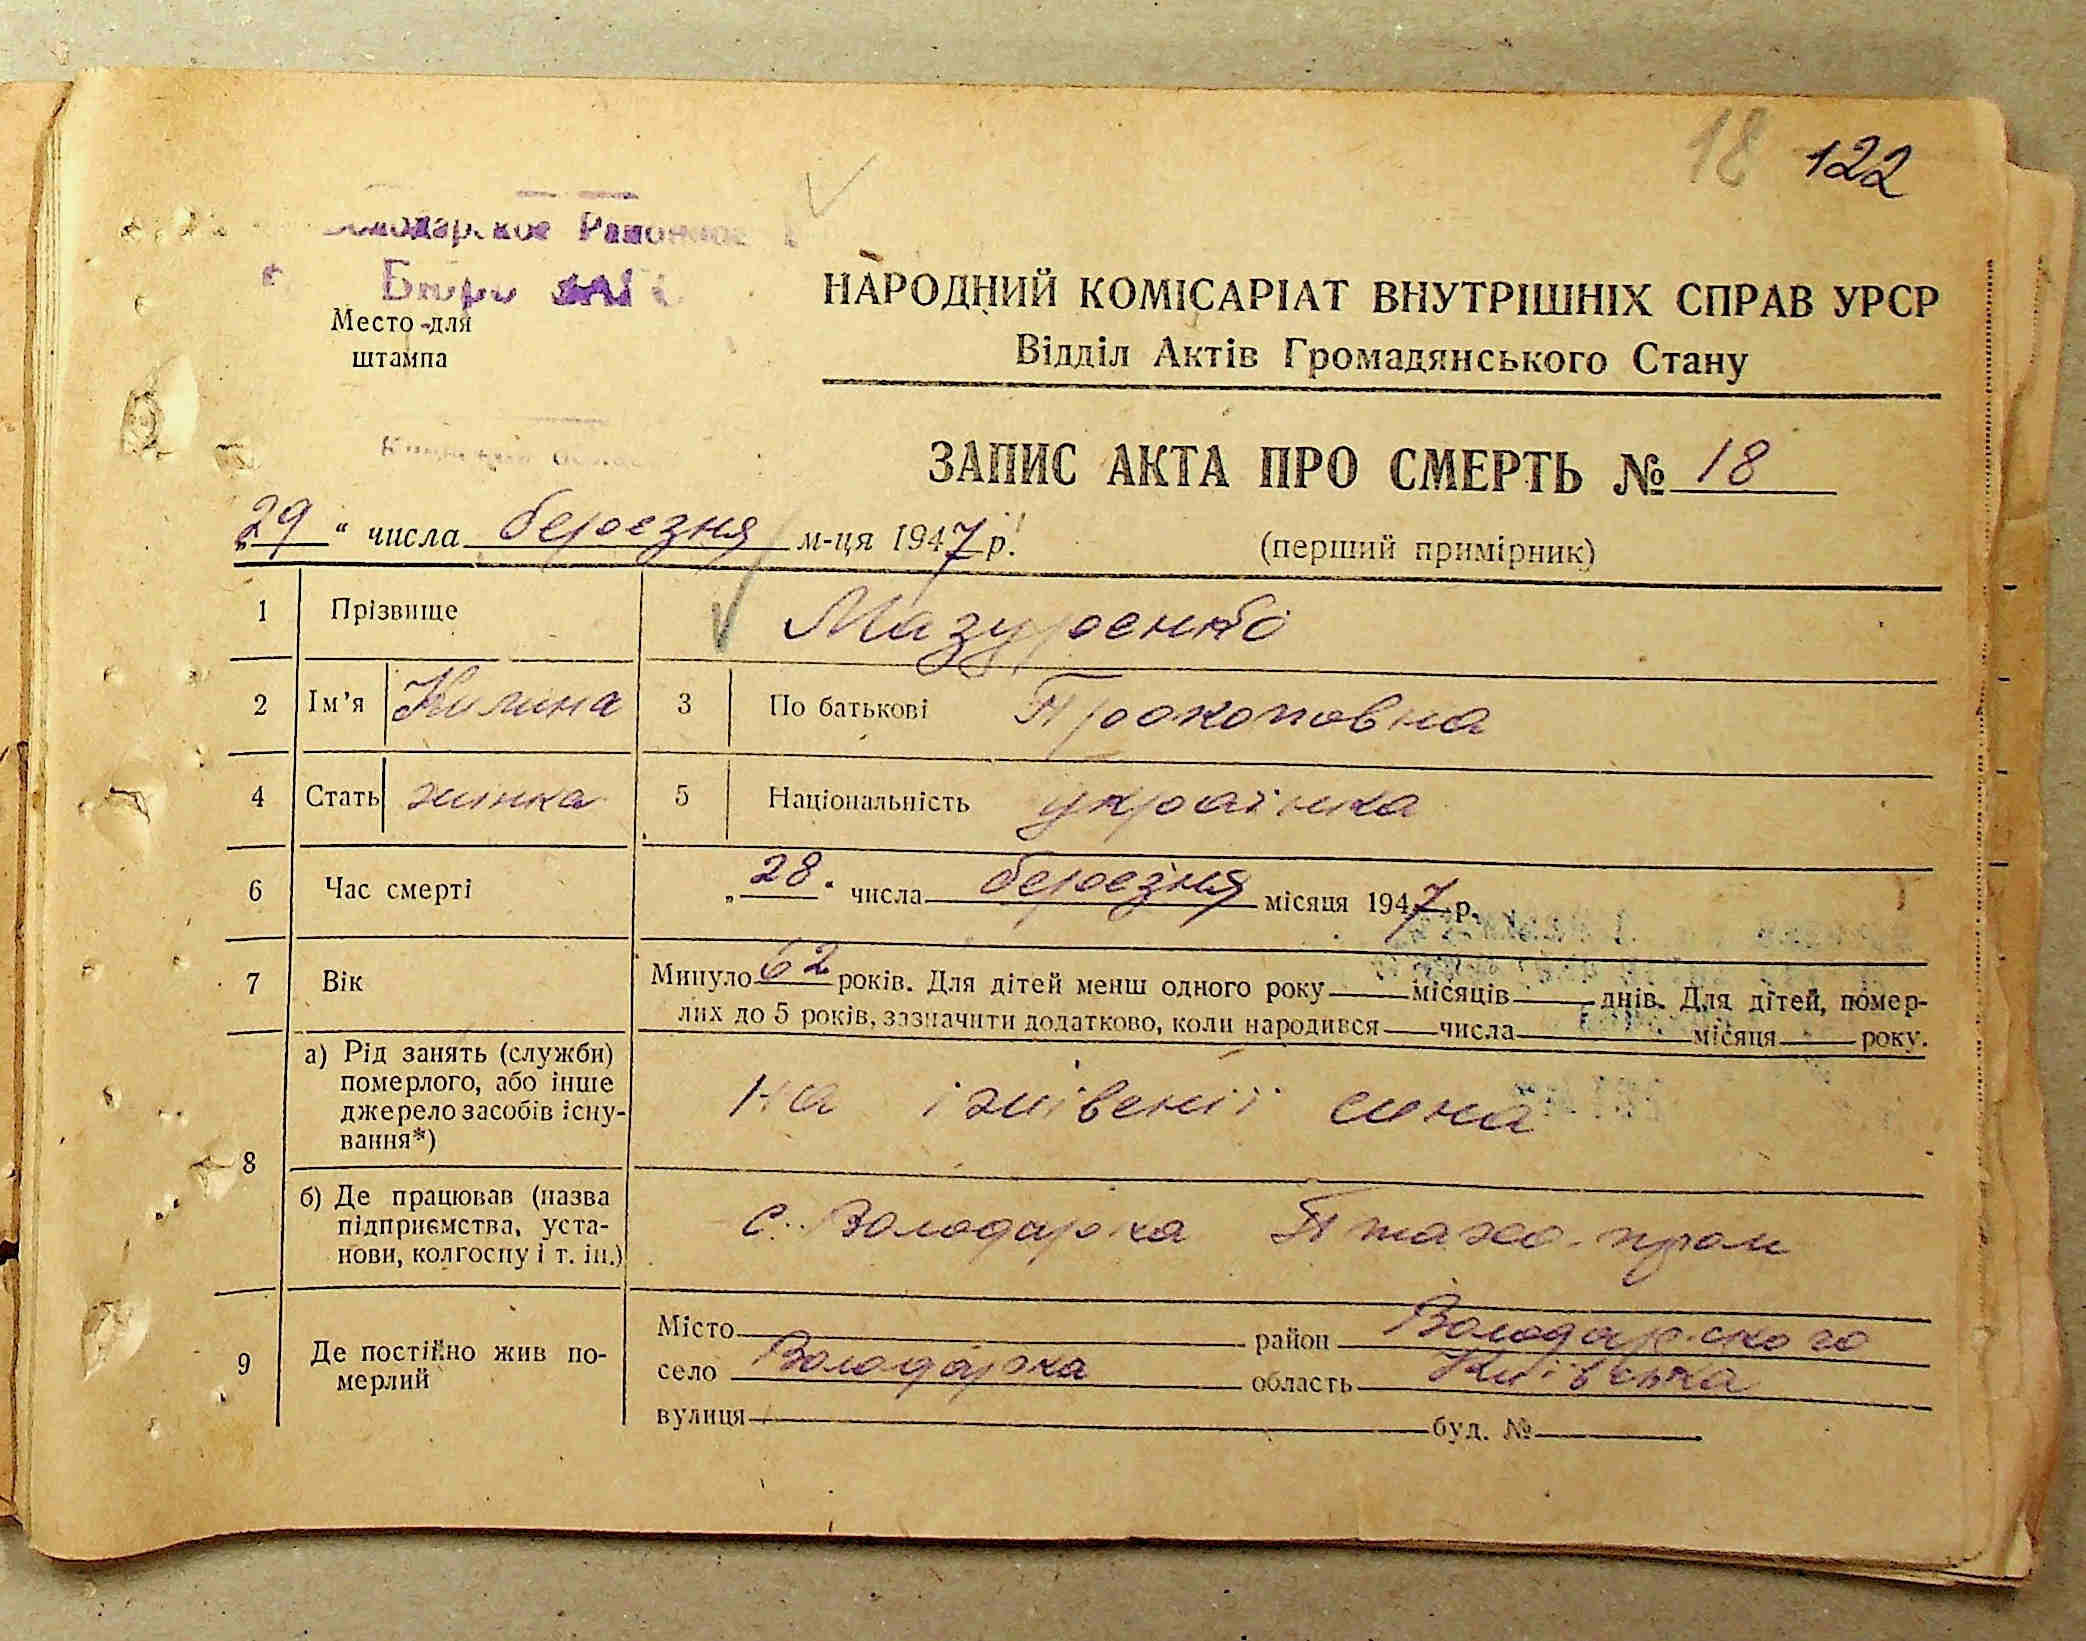 18 122
Бюро
Место для
штампа
НАРОДНИЙ КОМІСАРІАТ ВНУТРІШНІХ СПРАВ УРСР
Відділ Актів Громадянського Стану
ЗАПИС АКТА ПРО СМЕРТЬ № 18
„29“ числа березня м-ця 1947 р.
(перший примірник)
1 Прізвище Мазуренко
2 Ім'я Килина 3 По батькові Прокоповна
4 Стать жінка 5 Національність українка
6 Час смерті „28“ числа березня місяця 1947 р.
7 Вік Минуло 62 років. Для дітей менш одного року місяців днів. Для дітей, помер-
лих до 5 років, зазначити додатково, коли народився числа місяця року.
8 а) Рід занять (служби)
померлого, або інше
джерело засобів існу-
вання*)
на іжівенії сина
б) Де працював (назва
підприємства, уста-
нови, колгоспу і т. ін.)
с. Володарка Птахо-пром
9 Де постійно жив по-
мерлий
Місто район Володарского
село Володарка область Київська
вулиця буд. №